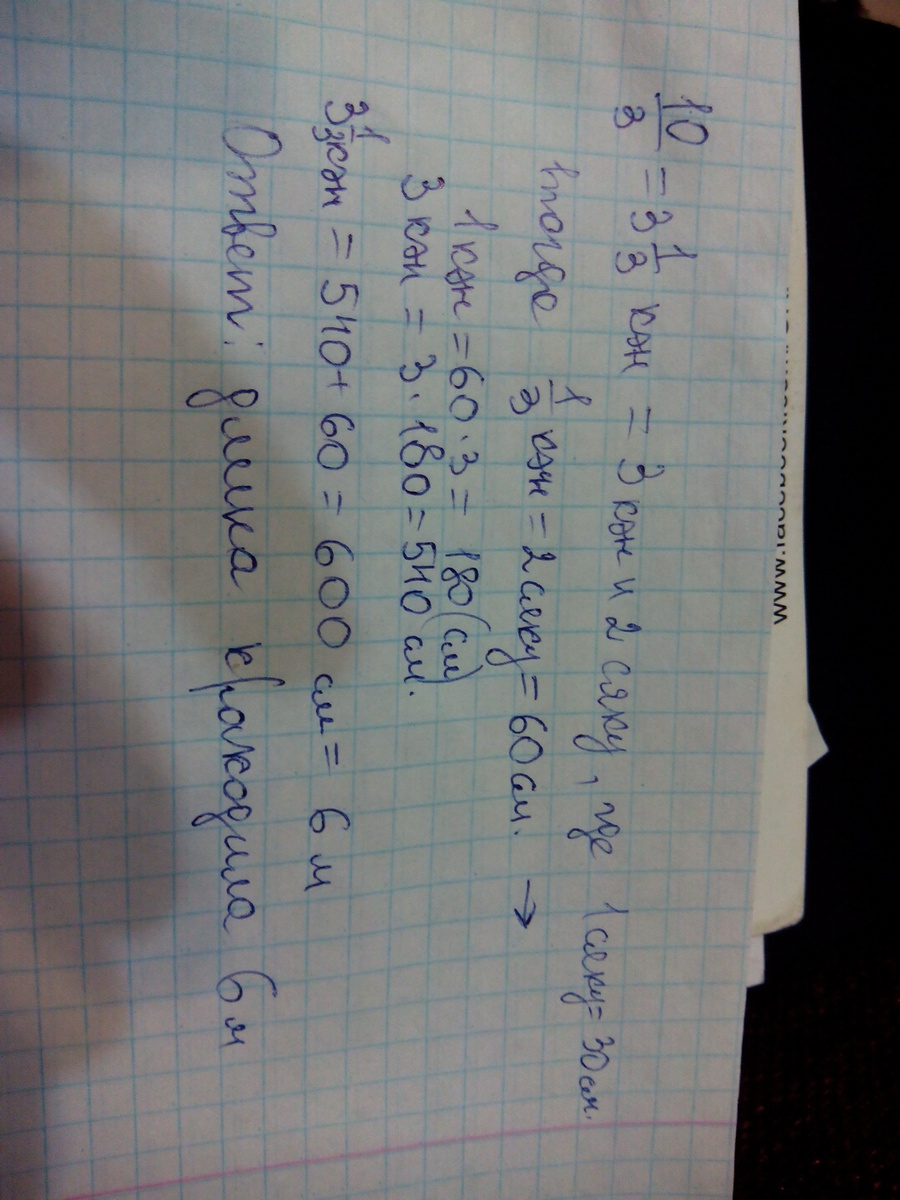 10/3 = 3 1/3 кэн = 3 кэн и 2 сяку, где 1 сяку = 30 см.
тогда 1/3 кэн = 2 сяку = 60 см. →
1 кэн = 60 · 3 = 180 (см)
3 кэн = 3 · 180 = 540 см.
3 1/3 кэн = 540 + 60 = 600 см = 6 м
Ответ: длина крокодила 6 м